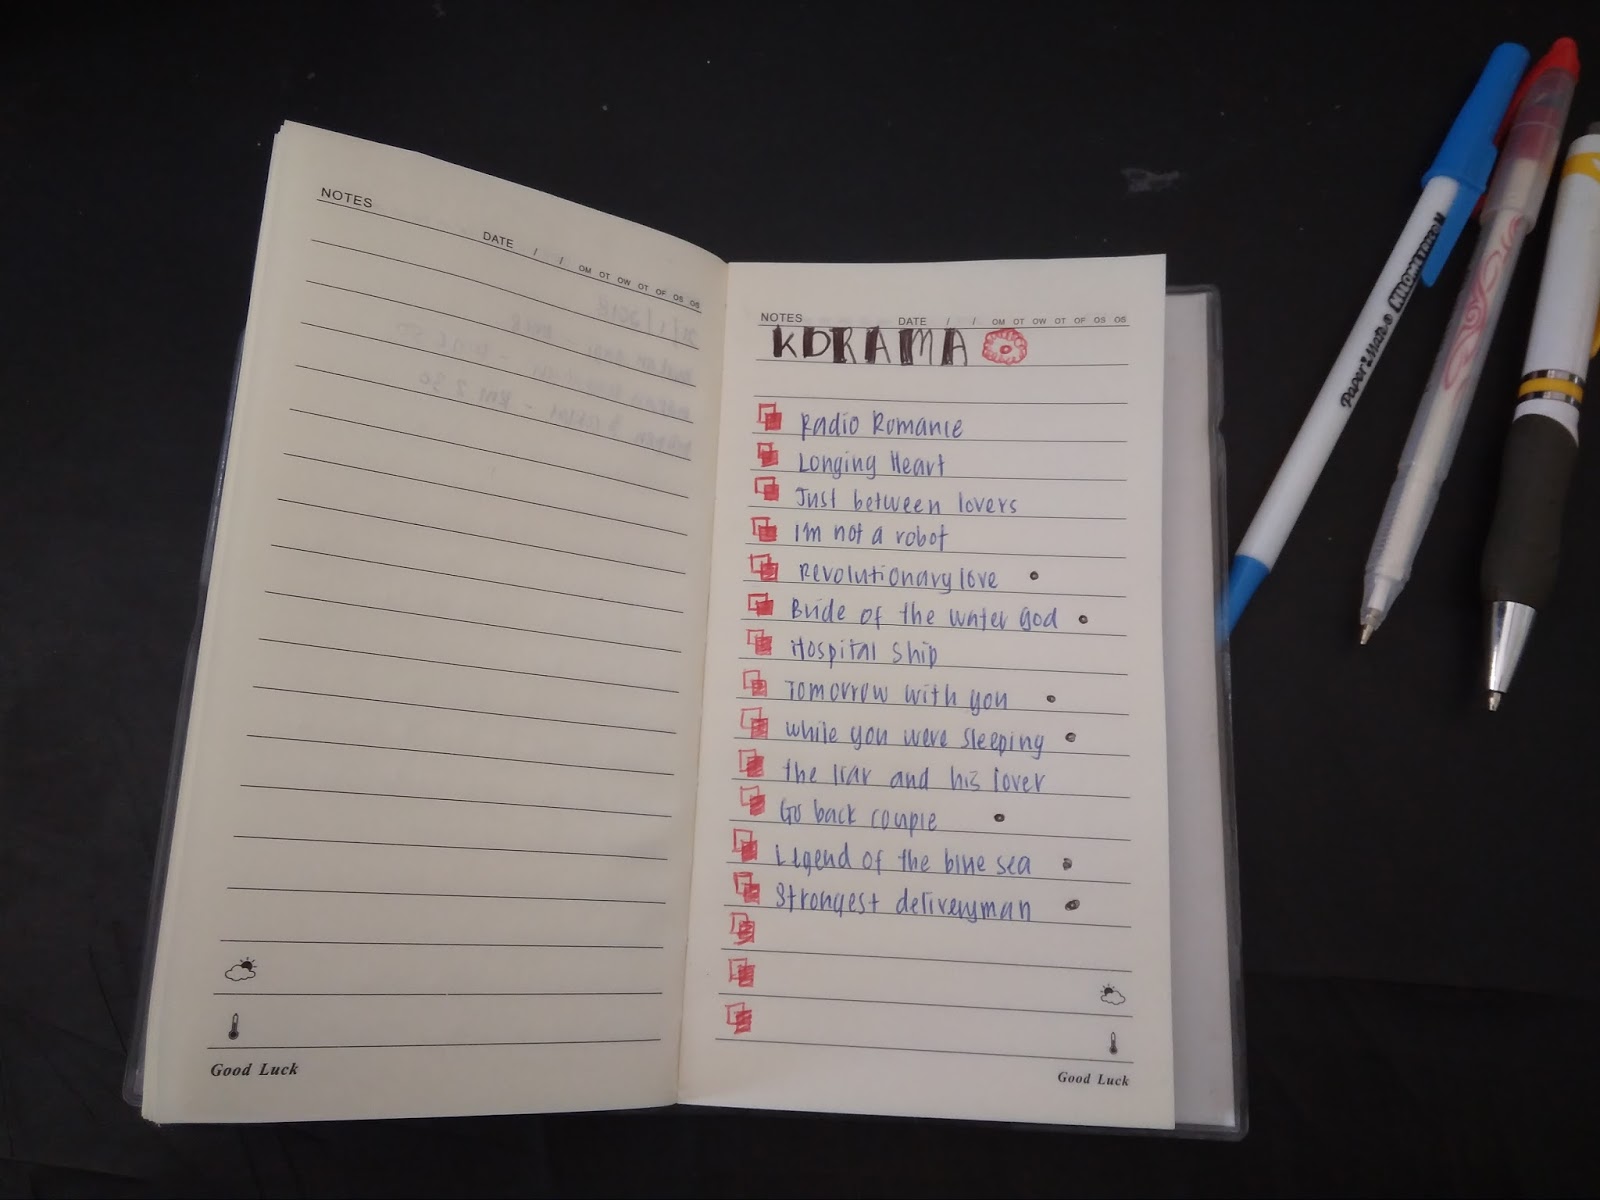 NOTES
DATE / / OM OT OW OT OF OS OS
Good Luck
NOTES DATE / / OM OT OW OT OF OS OS
KDRAMA
Radio Romance
Longing Heart
Just between lovers
I'm not a robot
Revolutionary love
Bride of the water god
Hospital Ship
Tomorrow with you
While you were sleeping
the liar and his lover
Go back couple
Legend of the blue sea
Strongest deliveryman
Good Luck
PAPER:MATE® KILOMETRICO M